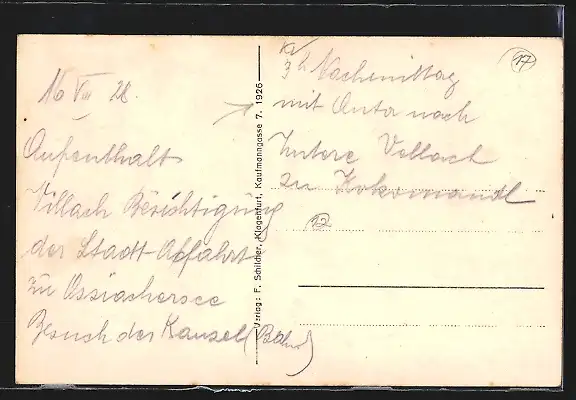 16 VIII 28.
Aufenthalt
Villach Besichtigung
der Stadt Abfahrt
zu Ossiachersee
Besuch der Kanzel (Bahn)
Verlag: F. Schildner, Klagenfurt, Kaufmanngasse 7. 1926
3h Nachmittag
mit Auto nach
Untere Vellach
zu
17
12